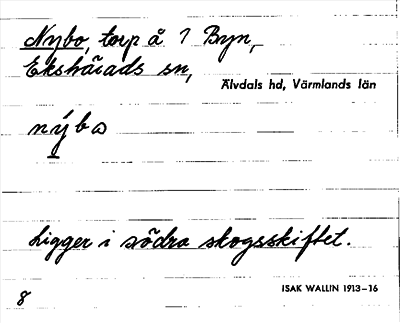 Nybo, torp å 7 Byn,
Ekshärads sn,
Älvdals hd, Värmlands län
nýbω
Ligger i södra skogsskiftet.
ISAK WALLIN 1913-16
8